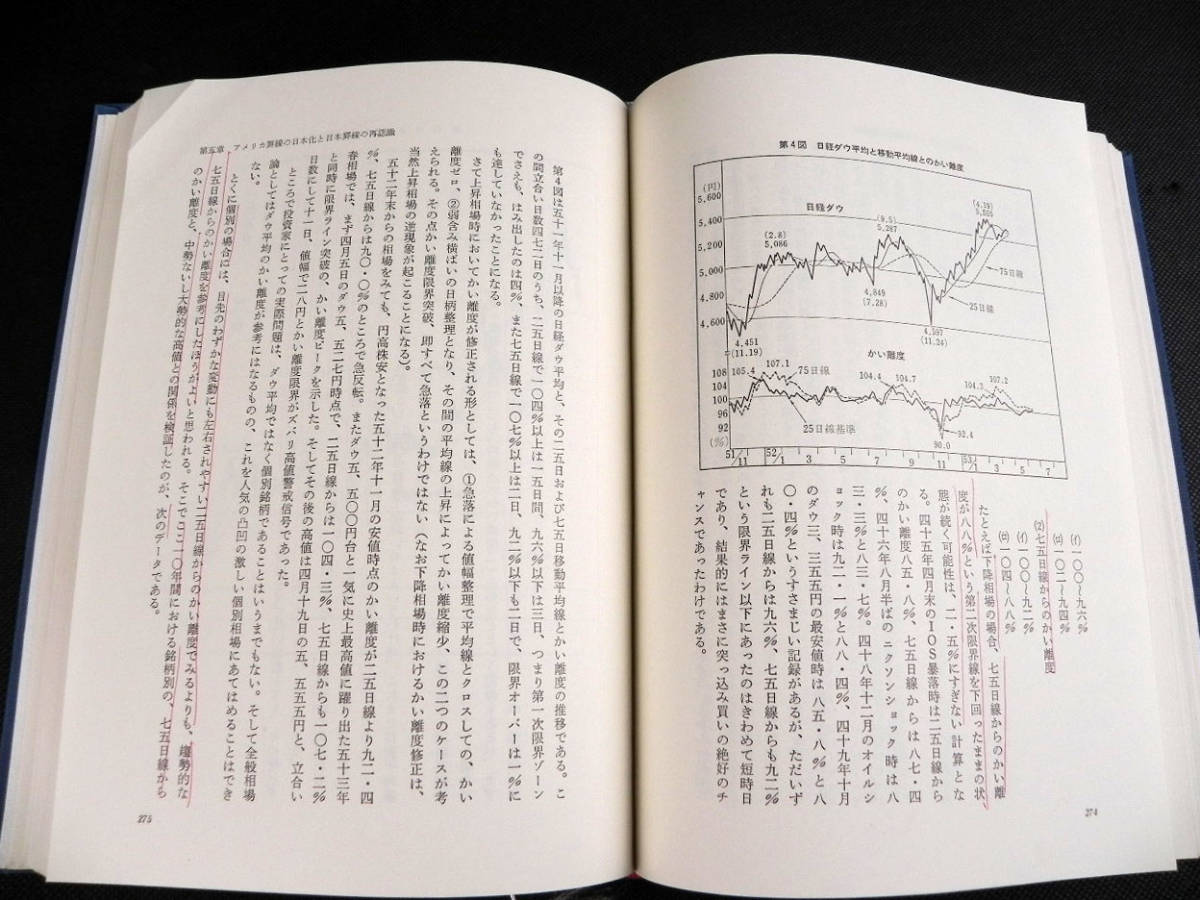 第4図　日経ダウ平均と移動平均線とのかい離度
(円)
5,600
5,400
5,200
5,000
4,800
4,600
日経ダウ
(2.8)
5,086
(9.5)
5,287
(4.19)
5,555
4,849
(7.28)
75日線
25日線
4,451
(11.19)
4,597
(11.24)
かい離度
108
104
100
96
92
(%)
105.4
107.1
75日線
104.4
104.7
104.3
107.2
25日線基準
92.4
90.0
51/11
52/1
3
5
7
9
11
53/1
3
5
7
(f) 一〇〇〜九六%
(ロ) 一〇二〜九四%
(f) 一〇〇〜九二%
(ロ) 一〇四〜八八%
(2) 七五日線からのかい離度
たとえば下降相場の場合、七五日線からのかい離
度が八八%という第二次限界線を下回ったままの状
態が続く可能性は、二・五%にすぎない計算とな
る。四十五年四月末のIOS暴落時は二五日線から
のかい離度八五・八%、七五日線からは八七・四
%、四十六年八月半ばのニクソンショック時は八
三・三%と八三・七%。四十八年十二月のオイルシ
ョック時は九二・一%と八八・四%、四十九年十月
のダウ三、三五五円の最安値時は八五・八%と八
〇・四%というすさまじい記録があるが、ただいず
れも二五日線からは九六%、七五日線からも九二%
という限界ライン以下にあったのはきわめて短時日
であり、結果的にはまさに突っ込み買いの絶好のチ
ャンスであったわけである。
274
第五章　アメリカ罫線の日本化と日本罫線の再認識
第4図は五十一年十一月以降の日経ダウ平均と、その二五日および七五日移動平均線とかい離度の推移である。こ
の間立合い日数四七二日のうち、二五日線で一〇四%以上は一五日間、九六%以下は三日、つまり第一次限界ゾーン
でさえも、はみ出したのは四%、また七五日線で一〇七%以上は二日、九二%以下も二日で、限界オーバーは一%に
も達していなかったことになる。
さて上昇相場時においてかい離度が修正される形としては、①急落による値幅整理で平均線とクロスしての、かい
離度ゼロ、②弱含み横ばいの日柄整理となり、その間の平均線の上昇によってかい離度縮少、この二つのケースが考
えられる。その点かい離度限界突破、即すべて急落というわけではない（なお下降相場時におけるかい離度修正は、
当然上昇相場の逆現象が起こることになる）。
五十二年末からの相場をみても、円高株安となった五十二年十一月の安値時点のかい離度が二五日線より九二・四
%、七五日線からは九〇・〇%のところで急反転。またダウ五、五〇〇円台と一気に史上最高値に躍り出た五十三年
春相場では、まず四月五日のダウ五、五二七円時点で、二五日線からは一〇四・三%、七五日線からも一〇七・二%
と同時に限界ライン突破の、かい離度ピークを示した。そしてその後の高値は四月十九日の五、五五五円と、立合い
日数にして十一日、値幅で二八円とかい離度限界がズバリ高値警戒信号であった。
ところで投資家にとっての実際問題は、ダウ平均ではなく個別銘柄であることはいうまでもない。そして全般相場
論としてはダウ平均のかい離度が参考にはなるものの、これを人気の凸凹の激しい個別相場にあてはめることはでき
ない。
とくに個別の場合には、目先のわずかな変動にも左右されやすい二五日線からのかい離度でみるよりも、趨勢的な
七五日線からのかい離度を参考にしたほうがよいと思われる。そこでここ一〇年間における銘柄別の、七五日線から
のかい離度と、中勢ないし大勢的な高値との関係を検証したのが、次のデータである。
275